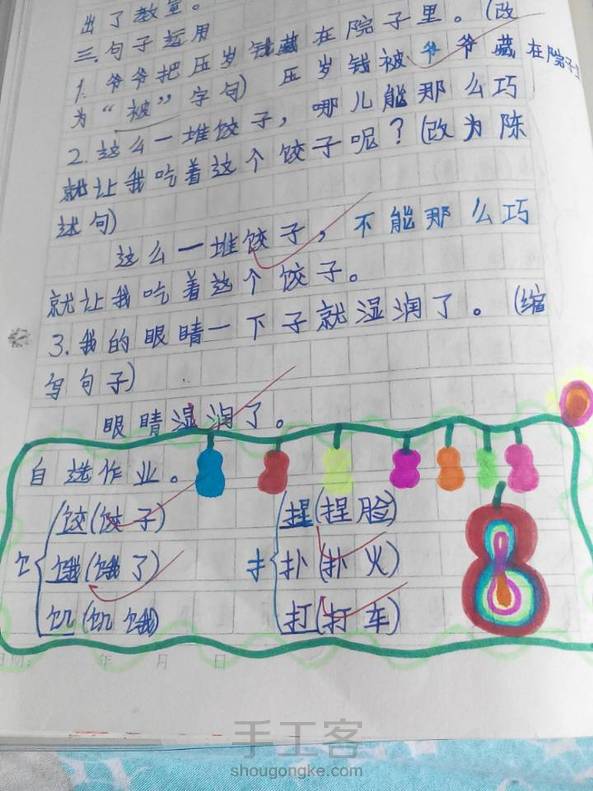 出了教室。
三.句子运用
1.爷爷把压岁钱藏在院子里。(改
为“被”字句) 压岁钱被爷爷藏在院子里
2.这么一堆饺子，哪儿能那么巧
就让我吃着这个饺子呢？(改为陈
述句)
这么一堆饺子，不能那么巧
就让我吃着这个饺子。
3.我的眼睛一下子就湿润了。(缩
写句子)
眼睛湿润了。
自选作业。
饺(饺子) 捏(捏脸)
饣 饿(饿了) 扌 扑(扑火)
饥(饥饿) 打(打车)
日期: 年 月 日
手工客
shougongke.com